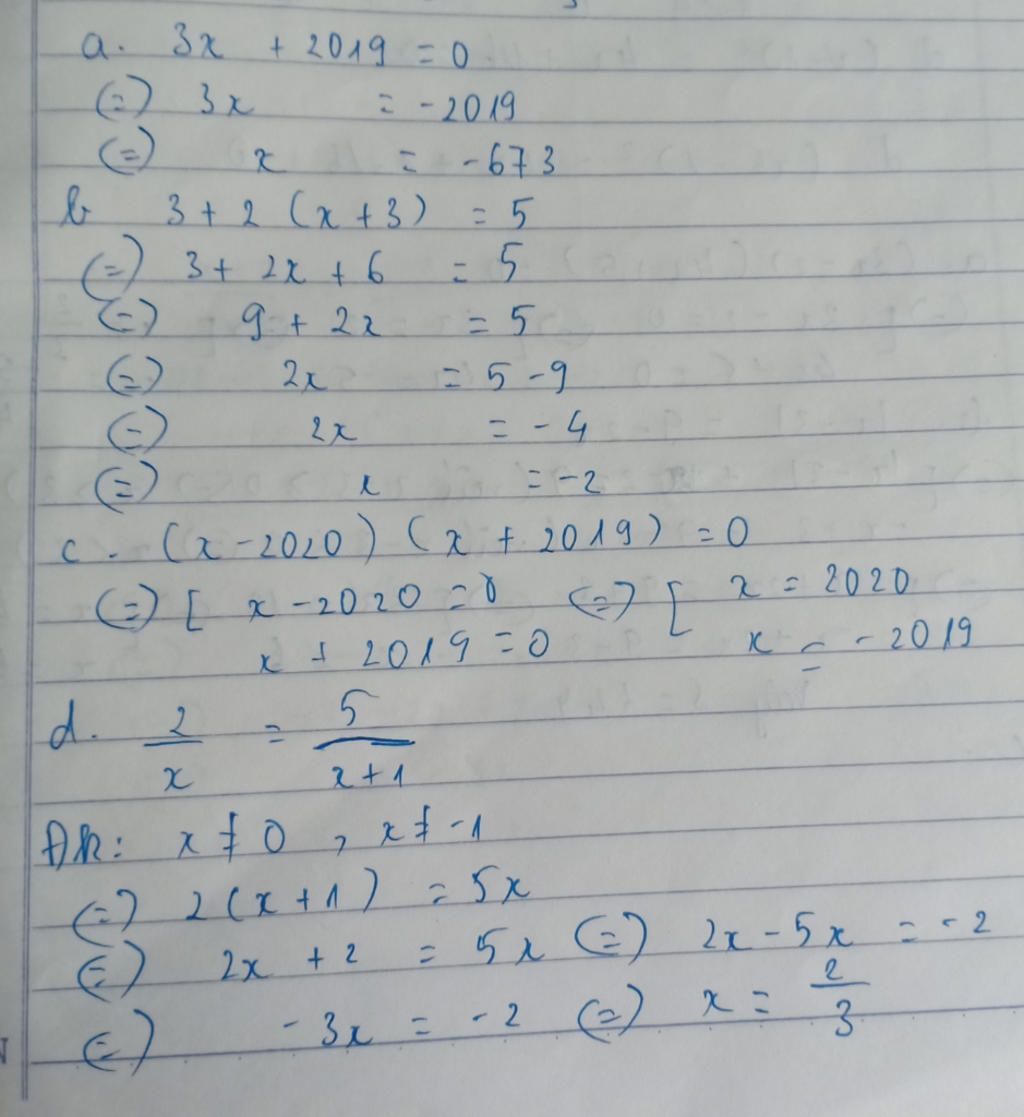 a. 3x + 2019 = 0
(=) 3x = -2019
(=) x = -673
b 3 + 2 (x + 3) = 5
(=) 3 + 2x + 6 = 5
(=) 9 + 2x = 5
(=) 2x = 5 - 9
(=) 2x = - 4
(=) x = -2
c. (x - 2020) (x + 2019) = 0
(=) [ x - 2020 = 0 (=) [ x = 2020
x + 2019 = 0 x = - 2019
d. 2/x = 5/(x+1)
Đk: x ≠ 0 , x ≠ -1
(=) 2(x + 1) = 5x
(=) 2x + 2 = 5x (=) 2x - 5x = - 2
(=) - 3x = - 2 (=) x = 2/3